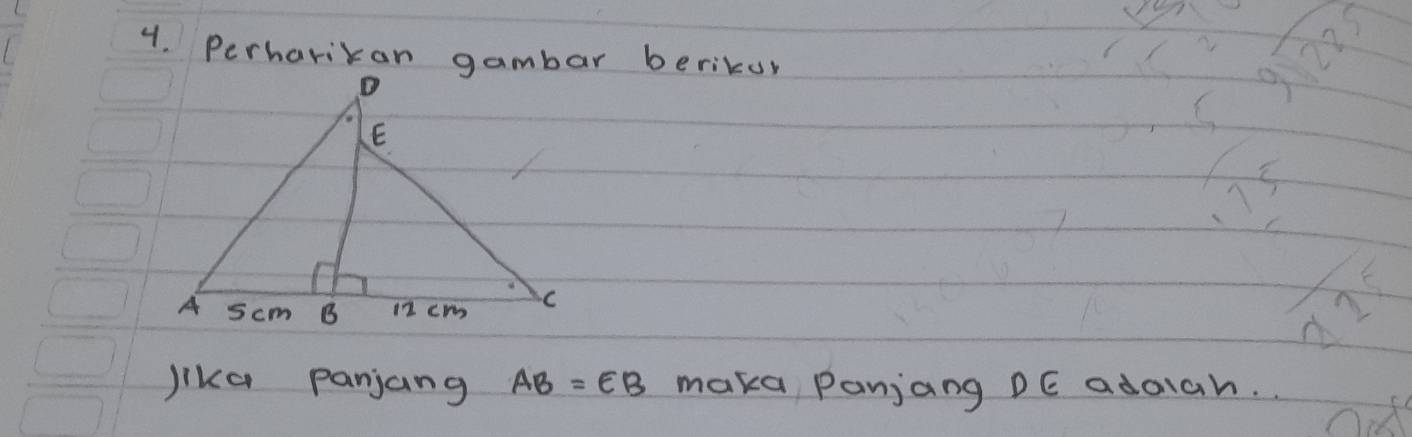 4. Perharikan gambar berikur
D
E
A 5cm B 12 cm C
Jika panjang AB = EB maka panjang DE adalah..